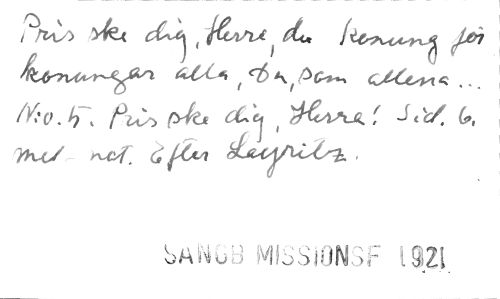 Pris ske dig, Herre, du konung för
konungar alla, Du, som allena...
N:o 5. Pris ske dig, Herra! Sid. 6.
mel. not. Efter Layritz.
SANGB MISSIONSF 1921